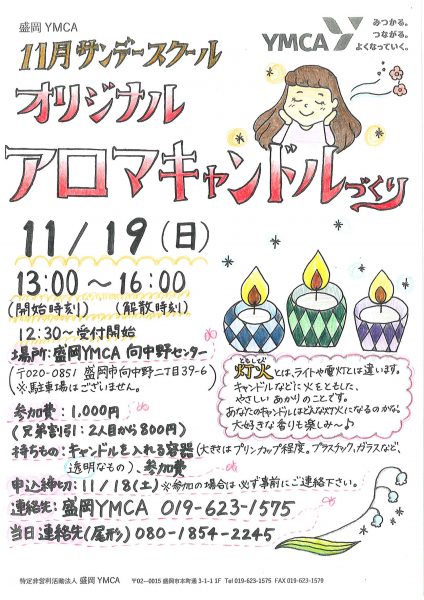 盛岡 YMCA
YMCA
みつかる。
つながる。
よくなっていく。
11月サンデースクール
オリジナル
アロマキャンドルづくり
11/19(日)
13:00～16:00
(開始時刻) (解散時刻)
12:30～受付開始
場所:盛岡YMCA 向中野センター
(〒020-0851 盛岡市向中野二丁目39-6)
※駐車場はございません。
ともしび
灯火とは、ライトや電灯とは違います。
キャンドルなどに火をともした、
やさしいあかりのことです。
あなたのキャンドルはどんな灯火になるのかな。
大好きな香りも楽しみ～♪
参加費:1,000円
(兄弟割引:2人目から800円)
持ちもの:キャンドルを入れる容器(大きさはプリンカップ程度。プラスチック、ガラスなど、
透明なもの)、参加費
申込締切:11/18(土) ※参加の場合は必ず事前にご連絡下さい。
連絡先:盛岡YMCA 019-623-1575
当日連絡先(尾形) 080-1854-2245
特定非営利活動法人 盛岡 YMCA 〒02—0015 盛岡市本町通 3-1-1 1F Tel 019-623-1575 FAX 019-623-1579